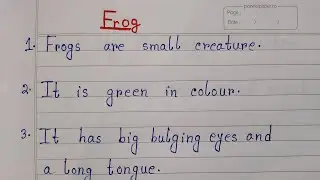 Frog
Page:
Date:
1. Frogs are small creature.
2. It is green in colour.
3. It has big bulging eyes and
a long tongue.